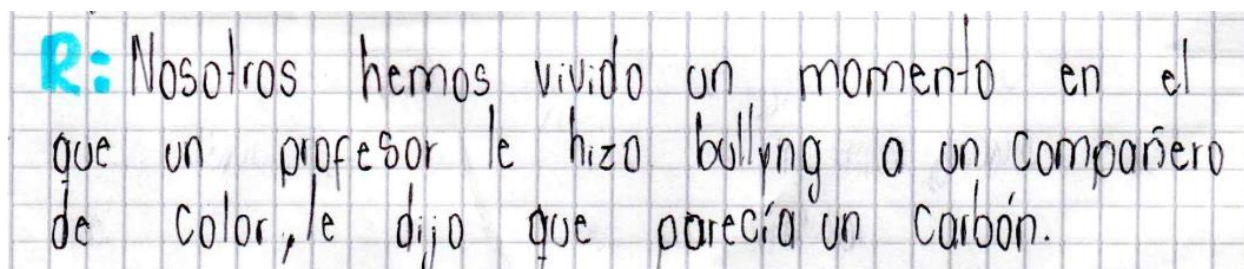 R: Nosotros hemos vivido un momento en el
que un profesor le hizo bullyng a un compañero
de color, le dijo que parecía un carbón.